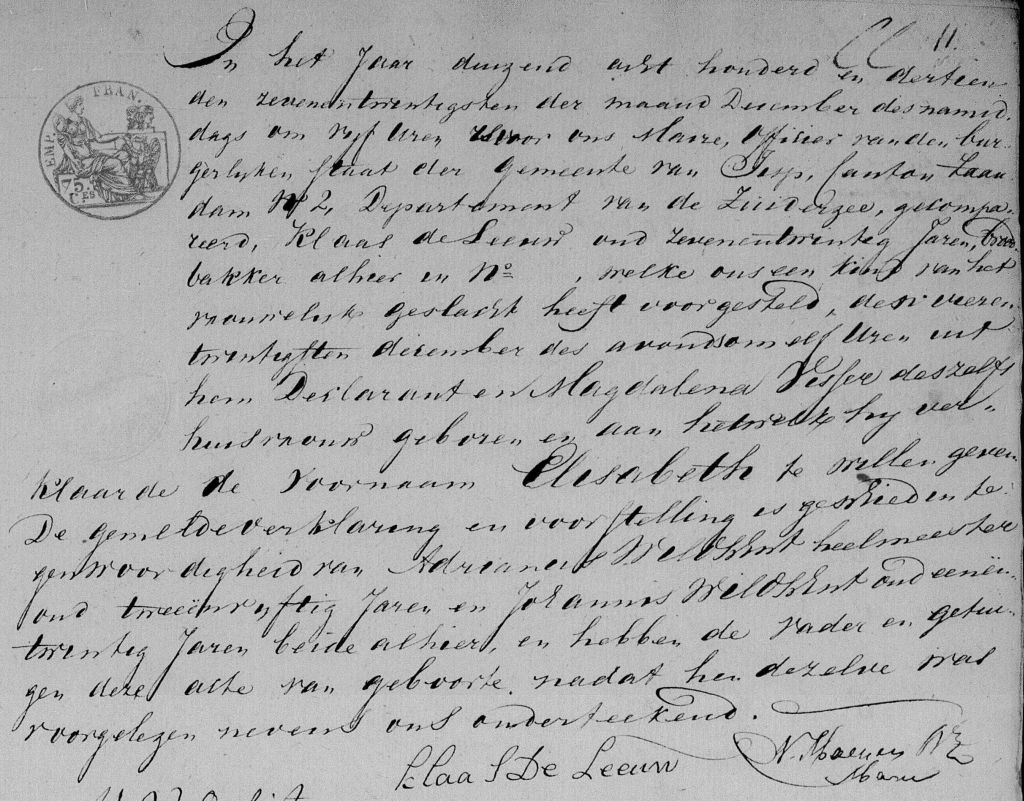 11.
In het Jaar duizend acht honderd en dertien
den zevenentwintigsten der maand December des namid,
dags om vyf Uren voor ons Maire, Officier van den bur-
EMP. FRAN.
75.
CES
gerlyken staat der gemeente van Jisp, Canton Zaan-
dam No 2, Departement van de Zuiderzee, gecompa,
reerd, Klaas de Leeuw oud zevenentwintig Jaren,
bakker alhier en No , welke ons een kind van het
vrouwelyk geslacht heeft voorgesteld, den vieren
twintigsten december des avonds om elf Uren uit
hem Declarant en Magdalena Visser deszelfs
huisvrouw geboren en aan hetwelk hy ver-
klaarde de voornaam Elisabeth te willen geven
De gemelde verklaring en voorstelling is geschied in te-
genwoordigheid van Adrianus Veldhent heelmeester
oud tweeënvyftig Jaren en Johannis Veldhent oud eenën
twentig Jaren beide alhier, en hebben de vader en getui-
gen deze acte van geboorte, nadat hen dezelve was
voorgelezen nevens ons onderteekend.
klaas De Leeuw